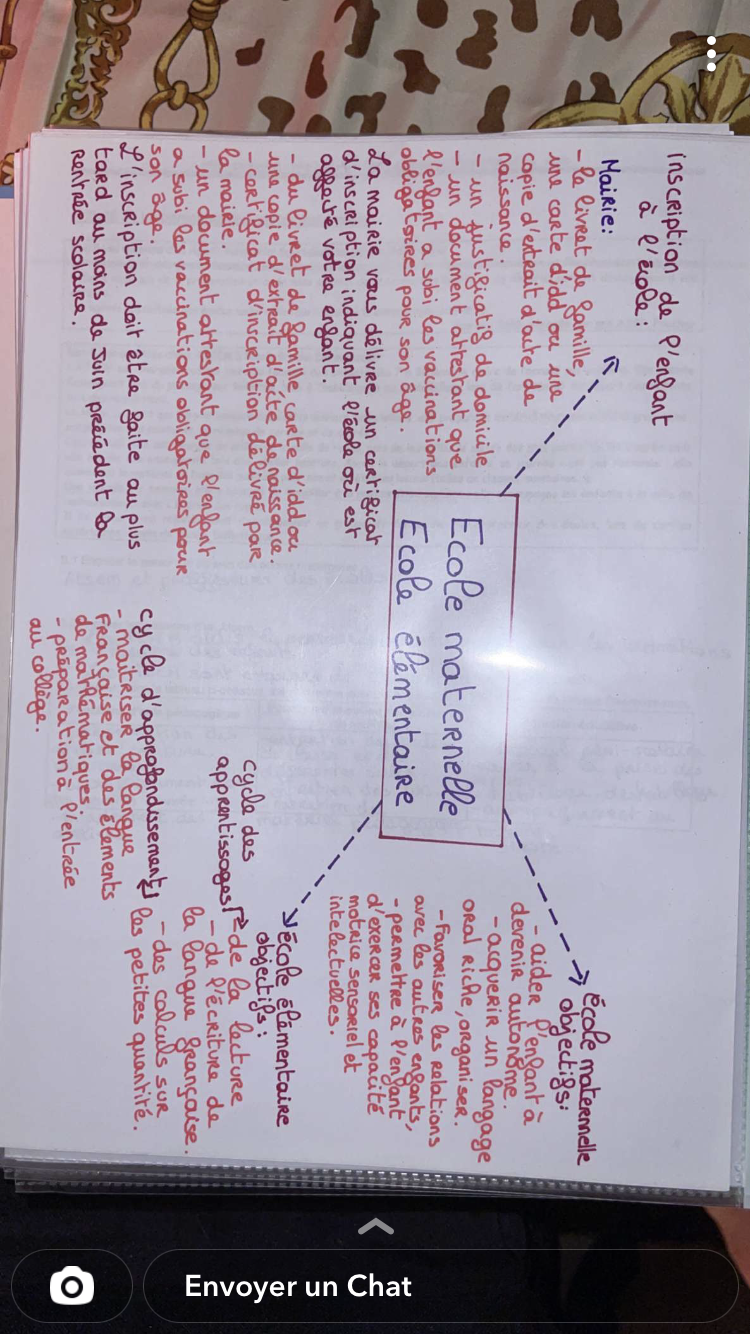 inscription de l'enfant
à l'école :
Mairie:
- le livret de famille,
une carte d'idd ou une
copie d'extrait d'acte de
naissance.
- un justificatif de domicile
- un document attestant que
l'enfant a subi les vaccinations
obligatoires pour son âge.
La mairie vous délivre un certificat
d'inscription indiquant l'école où est
affecté votre enfant.
- du livret de famille, carte d'idd ou
une copie d'extrait d'acte de naissance.
- certificat d'inscription délivré par
la mairie.
- un document attestant que l'enfant
a subi les vaccination obligatoires pour
son âge.
L'inscription doit être faite au plus
tard au mois de Juin précédent la
rentrée scolaire.
Ecole maternelle
Ecole élémentaire
école maternelle
objectifs:
- aider l'enfant à
devenir autonome.
- acquerir un langage
oral riche, organiser.
- Favoriser les relations
avec les autres enfants,
- permettre à l'enfant
d'exercer ses capacité
motrice sensoriel et
intelectuelles.
école élémentaire
objectifs :
cycle des
apprentissages
- de la lecture
- de l'écriture de
la langue française.
- des calculs sur
les petites quantité.
cycle d'approfondissement
- maitriser la langue
Française et des éléments
de mathématiques
- préparation à l'entrée
au collège.
Envoyer un Chat